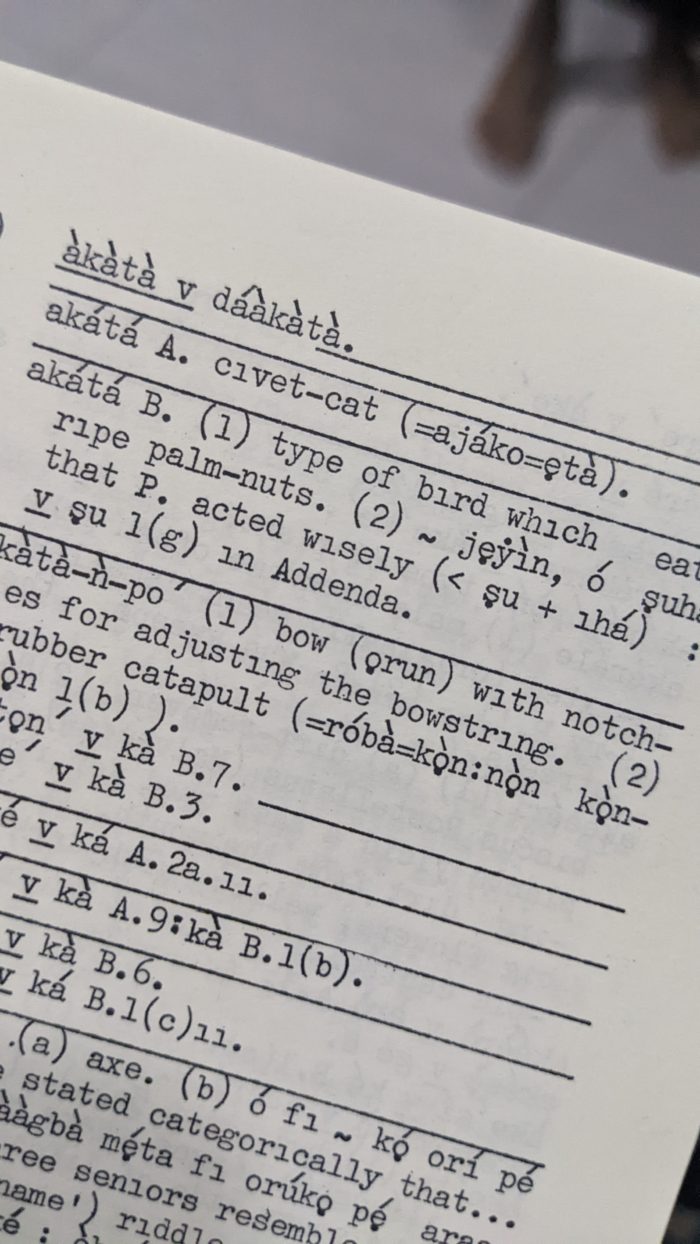 àkàtà v dáàkàtà.
akátá A. cıvet-cat (=ajáko=ẹtà).
akátá B. (1) type of bırd whıch eat
rıpe palm-nuts. (2) ~ jẹ́ÿìn, ó ṣuh
that P. acted wısely (< ṣu + ıhá) :
v ṣu 1(g) ın Addenda.
kàtà-ǹ-po ́ (1) bow (ọrun) wıth notch-
es for adjustıng the bowstrıng. (2)
rubber catapult (=róbà=kọ̀n:nọ̀n kọ̀n-
ọ̀n 1(b) ).
tọn ́ v kà B.7.
e ́ v kà B.3.
é v ká A.2a.ıı.
v kà A.9:kà B.1(b).
v kà B.6.
v ká B.1(c)ıı.
.(a) axe. (b) ó fı ~ kọ́ orí pé
stated categorıcally that...
ààgbà mẹ́ta fı orúkọ pẹ́ aras
ree senıors resemble
name') rıddle
é :